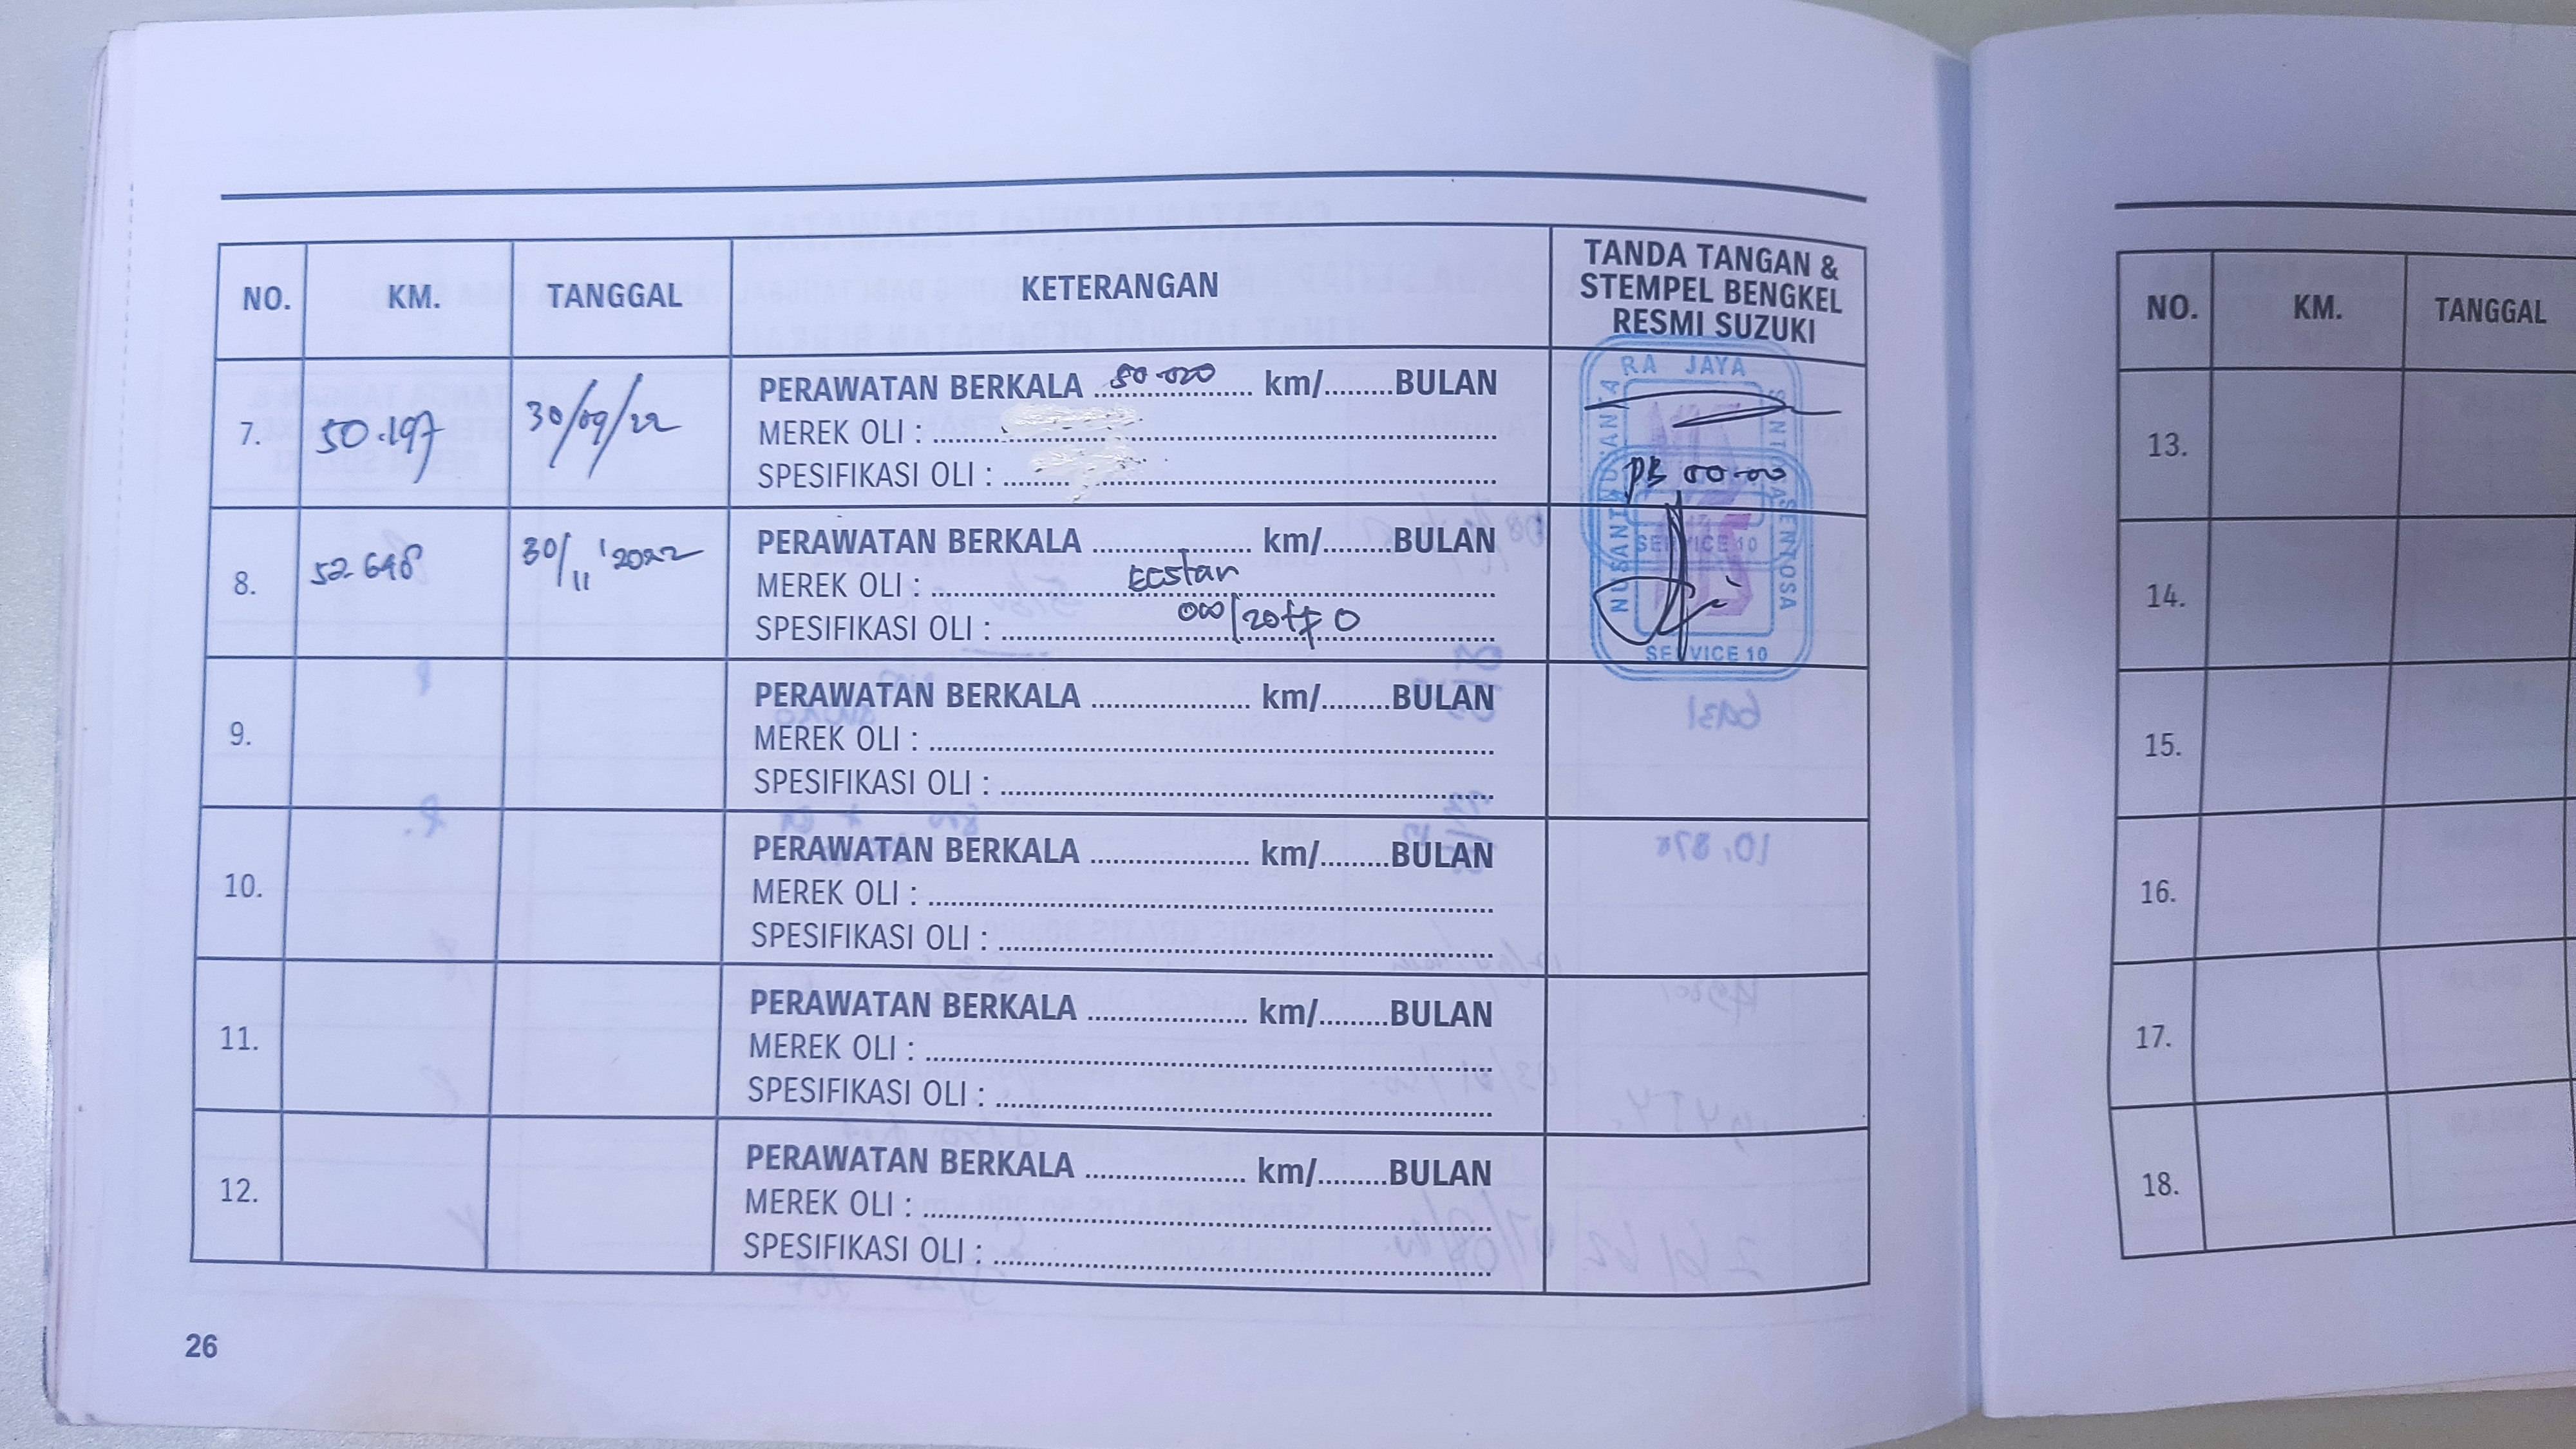 NO. KM. TANGGAL KETERANGAN TANDA TANGAN &
STEMPEL BENGKEL
RESMI SUZUKI
7. 50.197 30/09/22 PERAWATAN BERKALA 50.000 km/.........BULAN
MEREK OLI :
SPESIFIKASI OLI :
RA JAYA
8. 52.648 30/11 '2022 PERAWATAN BERKALA ...................... km/.........BULAN
MEREK OLI : Ecstar
SPESIFIKASI OLI :
NUSANTARA JAYA SENTOSA
SERVICE 10
SERVICE 10
9. PERAWATAN BERKALA ...................... km/.........BULAN
MEREK OLI :
SPESIFIKASI OLI :
10. PERAWATAN BERKALA ...................... km/.........BULAN
MEREK OLI :
SPESIFIKASI OLI :
11. PERAWATAN BERKALA ...................... km/.........BULAN
MEREK OLI :
SPESIFIKASI OLI :
12. PERAWATAN BERKALA ...................... km/.........BULAN
MEREK OLI :
SPESIFIKASI OLI :
26
NO. KM. TANGGAL
13.
14.
15.
16.
17.
18.